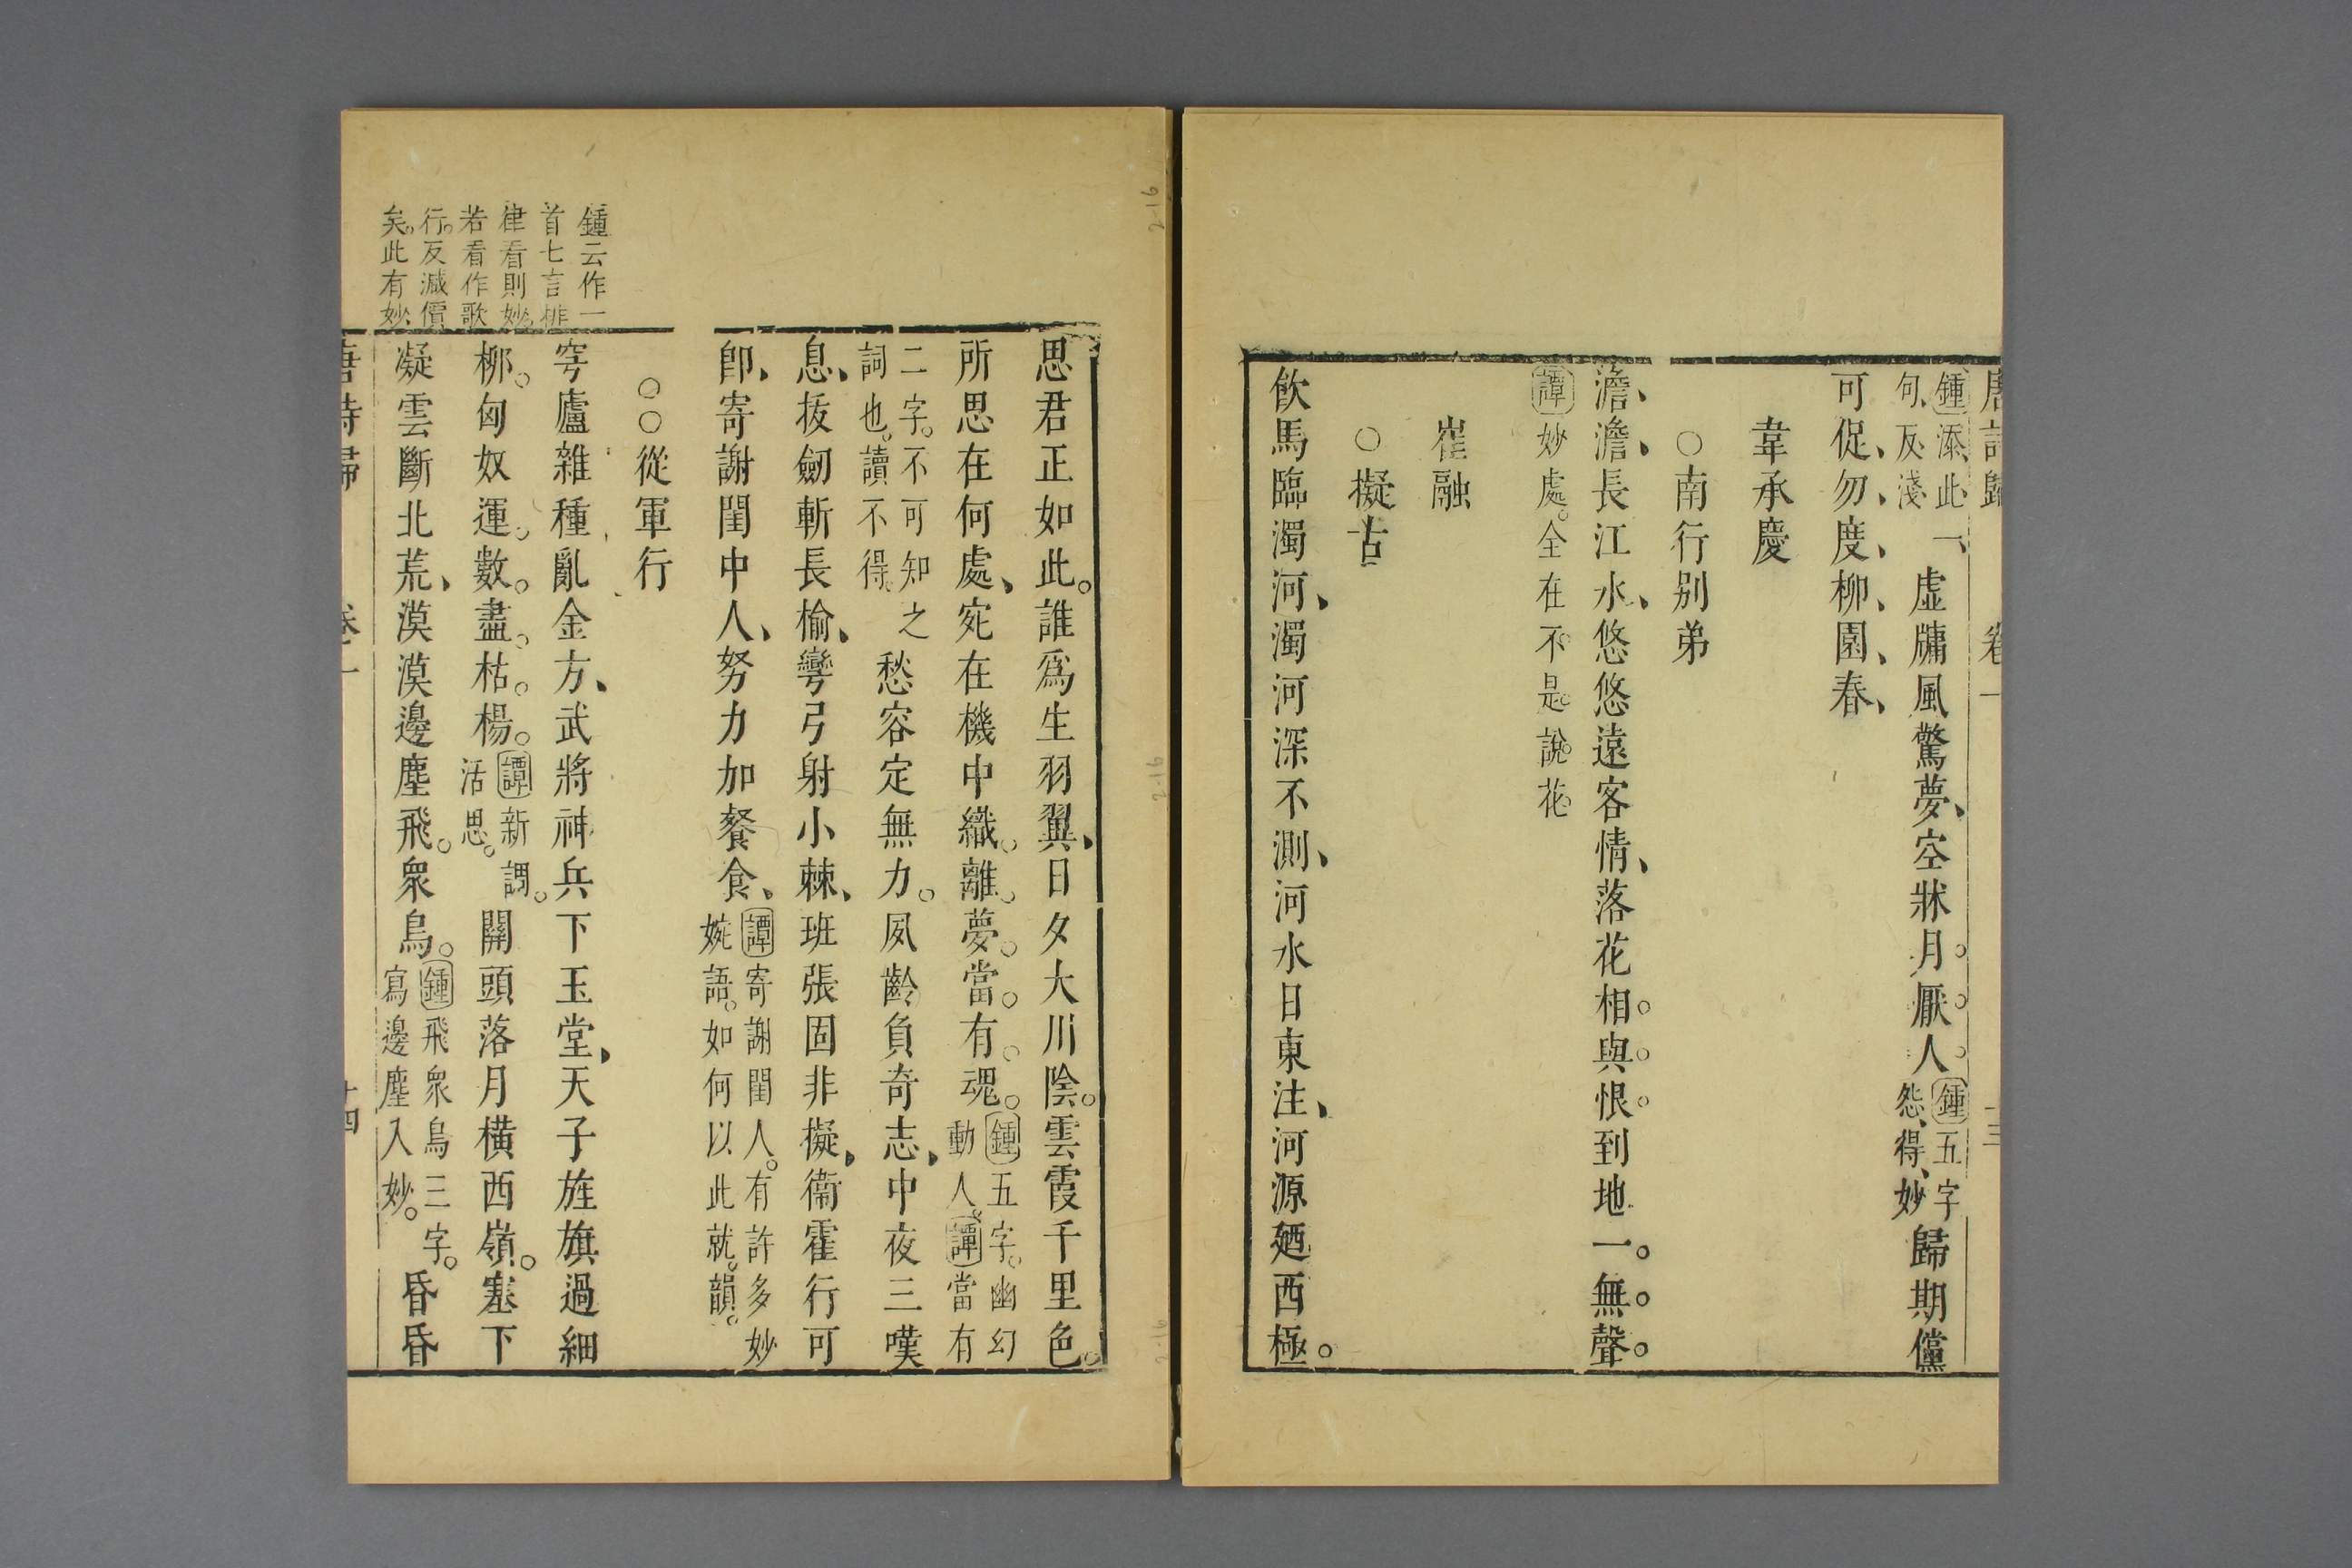 唐詩歸 卷一 十三
鍾添此一句反淺虛牗風驚夢空牀月厭人鍾五字怨得妙歸期儻
可促勿度柳園春
韋承慶
○南行别弟
澹澹長江水悠悠遠客情落花相與恨到地一無聲
譚妙處全在不是說花
崔融
○擬古
飲馬臨濁河濁河深不測河水日東注河源廼西極
思君正如此誰爲生羽翼日夕大川陰雲霞千里色
所思在何處宛在機中織離夢當有魂鍾五字幽幻動人譚當有
二字不可知之詞也讀不得愁容定無力夙齡負奇志中夜三嘆
息拔劒斬長榆彎弓射小棘班張固非擬衞霍行可
卽寄謝閨中人努力加餐食譚寄謝閨人有許多妙婉語如何以此就韻
○○從軍行
穹廬雜種亂金方武將神兵下玉堂天子旌旗過細
柳匈奴運數盡枯楊譚新調活思關頭落月橫西嶺塞下
凝雲斷北荒漠漠邊塵飛衆鳥鍾飛衆鳥三字寫邊塵入妙昏昏
唐詩歸 卷一 十四
鍾云作一
首七言排
律看則妙
若看作歌
行反減價
矣此有妙